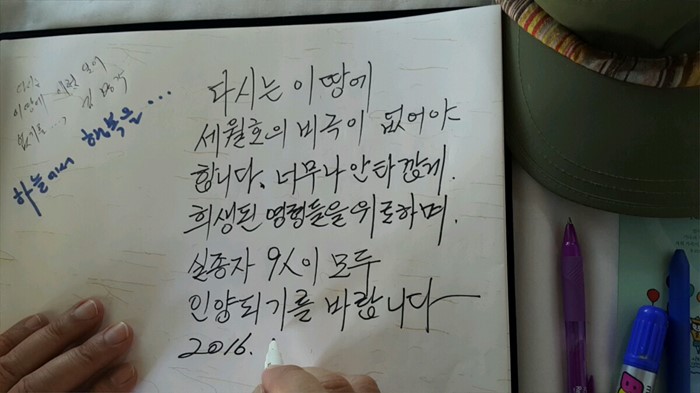 다시는
이땅에 이런 일이
없기를...
하늘에서 행복을...
다시는 이땅에
세월호의 비극이 없어야
합니다. 너무나 안타깝게
희생된 영령들을 위로하며.
실종자 9人이 모두
인양되기를 바랍니다
2016.